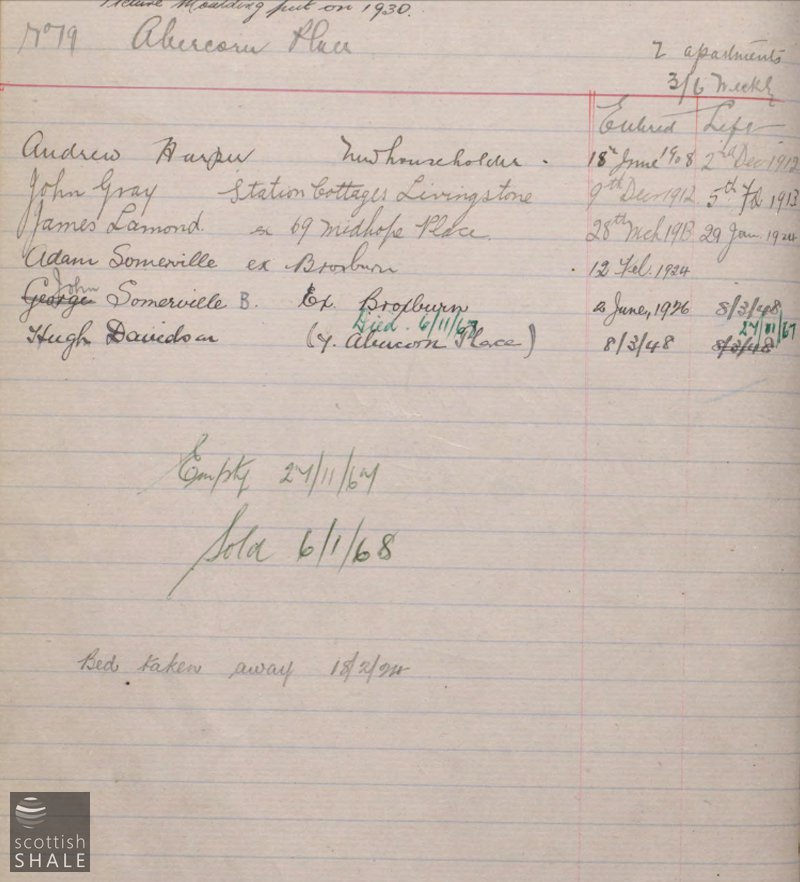 Picture Moulding put on 1930.
No 79 Abercorn Place
2 apartments
3/6 Weekly
Entered Left
Andrew Harper New householder. 18th June 1908 2nd Dec 1912
John Gray Station Cottages Livingstone 9th Decr 1912 5th Feb 1913
James Lamond. ex 69 Midhope Place. 28th Mch 1913 29 Jan. 1924
Adam Somerville ex Broxburn 12 Feb. 1924
John
George Somerville B. Ex. Broxburn 2 June, 1926 8/3/48
Died. 6/11/67 27/11/67
Hugh Davidson (7. Abercorn Place) 8/3/48 8/3/48
Empty 27/11/67
Sold 6/1/68
Bed taken away 18/2/24
scottish
SHALE